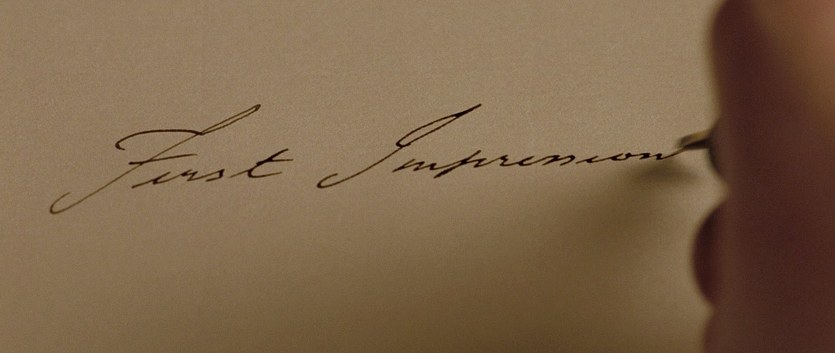 First Impression